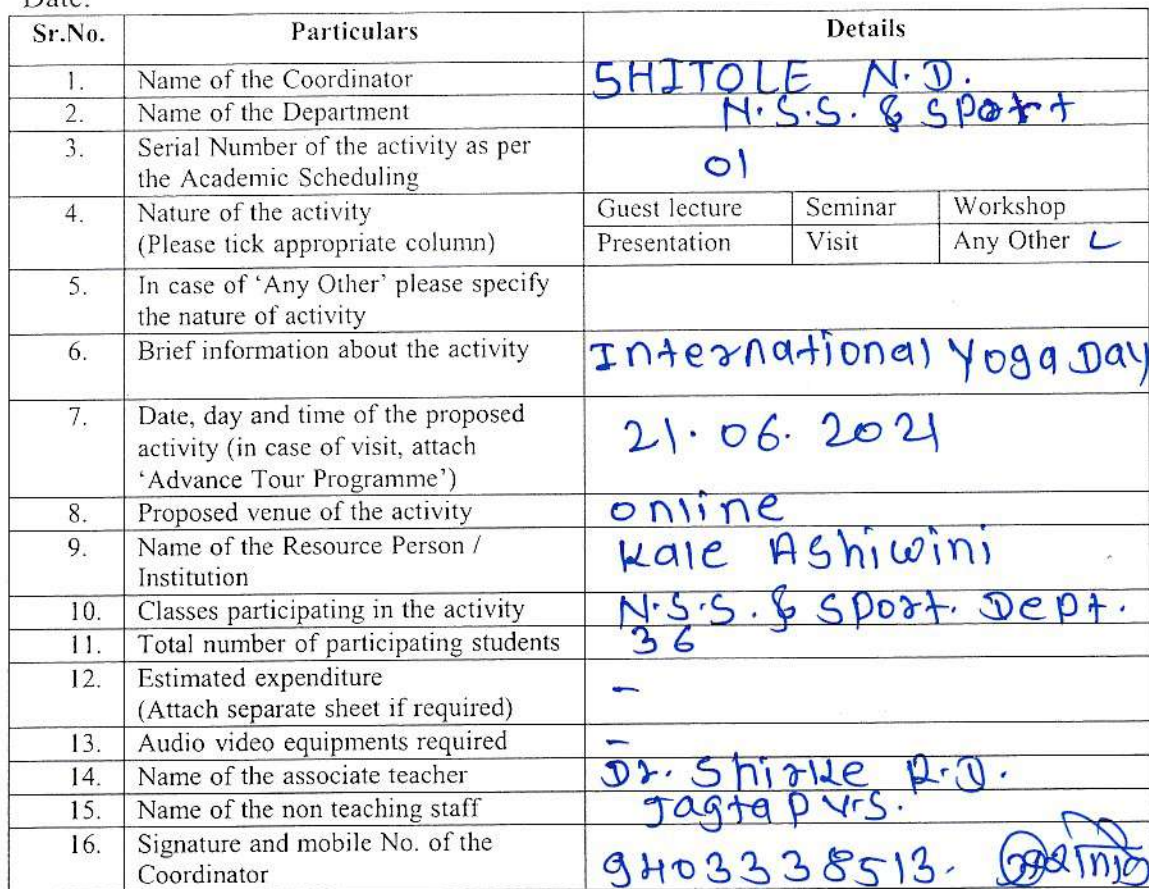 Date:
Sr.No. Particulars Details
1. Name of the Coordinator SHITOLE N.D.
2. Name of the Department N.S.S. & Sport
3. Serial Number of the activity as per
the Academic Scheduling 01
4. Nature of the activity Guest lecture Seminar Workshop
(Please tick appropriate column) Presentation Visit Any Other
5. In case of ‘Any Other’ please specify
the nature of activity
6. Brief information about the activity International Yoga Day
7. Date, day and time of the proposed
activity (in case of visit, attach 21.06.2021
‘Advance Tour Programme’)
8. Proposed venue of the activity online
9. Name of the Resource Person / Kale Ashiwini
Institution
10. Classes participating in the activity N.S.S. & Sport. Dept.
11. Total number of participating students 36
12. Estimated expenditure -
(Attach separate sheet if required)
13. Audio video equipments required -
14. Name of the associate teacher Dr. Shirke R.D.
15. Name of the non teaching staff Jagtap V.S.
16. Signature and mobile No. of the
Coordinator 9403338513.